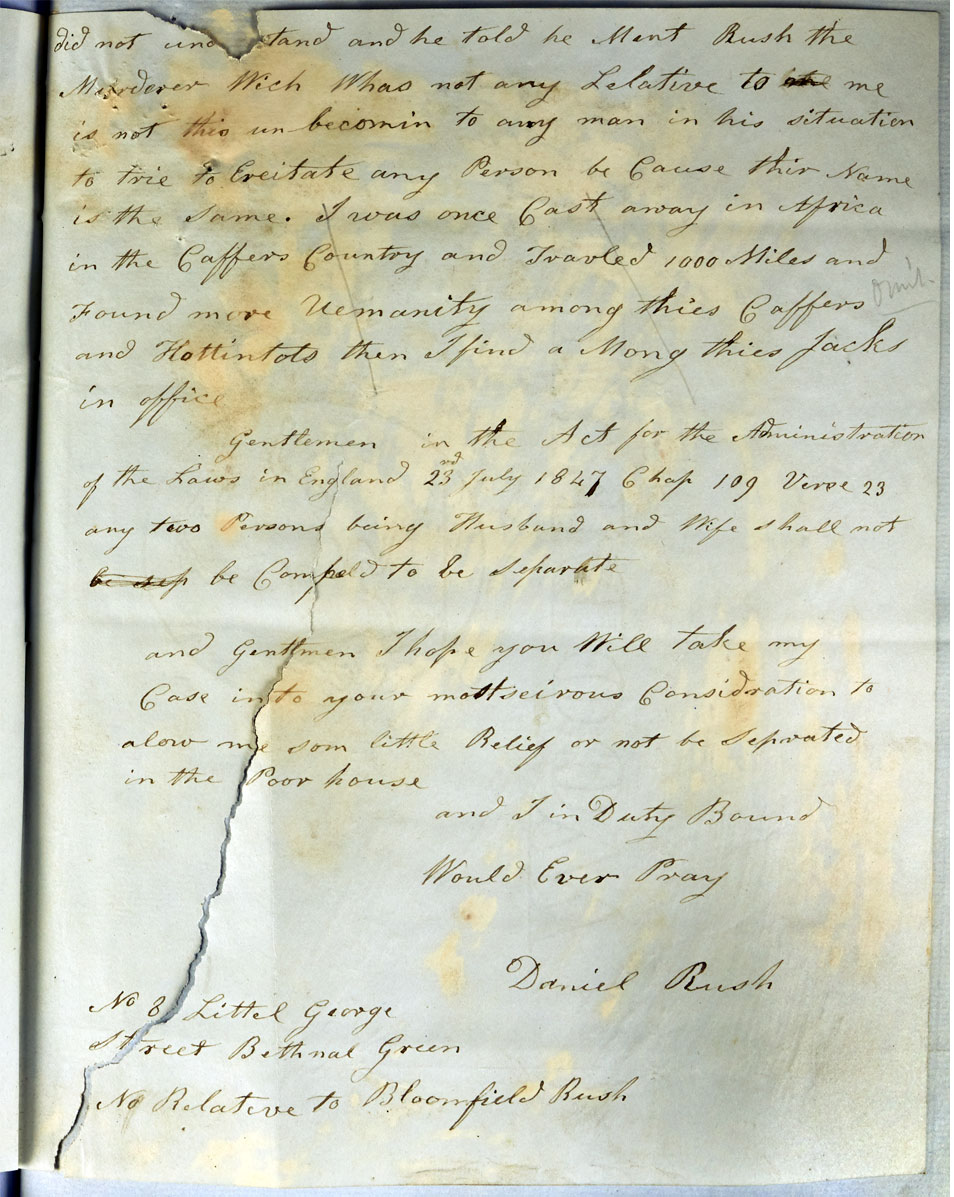 did not und tand and he told he Ment Rush the
Murderer Wich Whas not any Lelative to me
is not this un becomin to any man in his situation
to trie to Ereitate any Person be Cause thir Name
is the Same. I was once Cast away in Africa
in the Caffers Country and Travled 1000 Miles and
Omit.
Found more Uemanity among thies Caffers
and Hottintots then I find a Mong thies Jacks
in office
Gentlemen in the Act for the Administration
of the Laws in England 23rd July 1847 Chap 109 Verse 23
any two Persons being Husband and Wife shall not
be sep be Compeld to be Separate
and Gentlmen I hope you Will take my
Case into your mostseirous Considration to
alow me som little Relief or not be Seprated
in the Poor house
and I in Duty Bound
Would Ever Pray
Daniel Rush
No 8 Littel George
Street Bethnal Green
No Relative to Bloomfield Rush